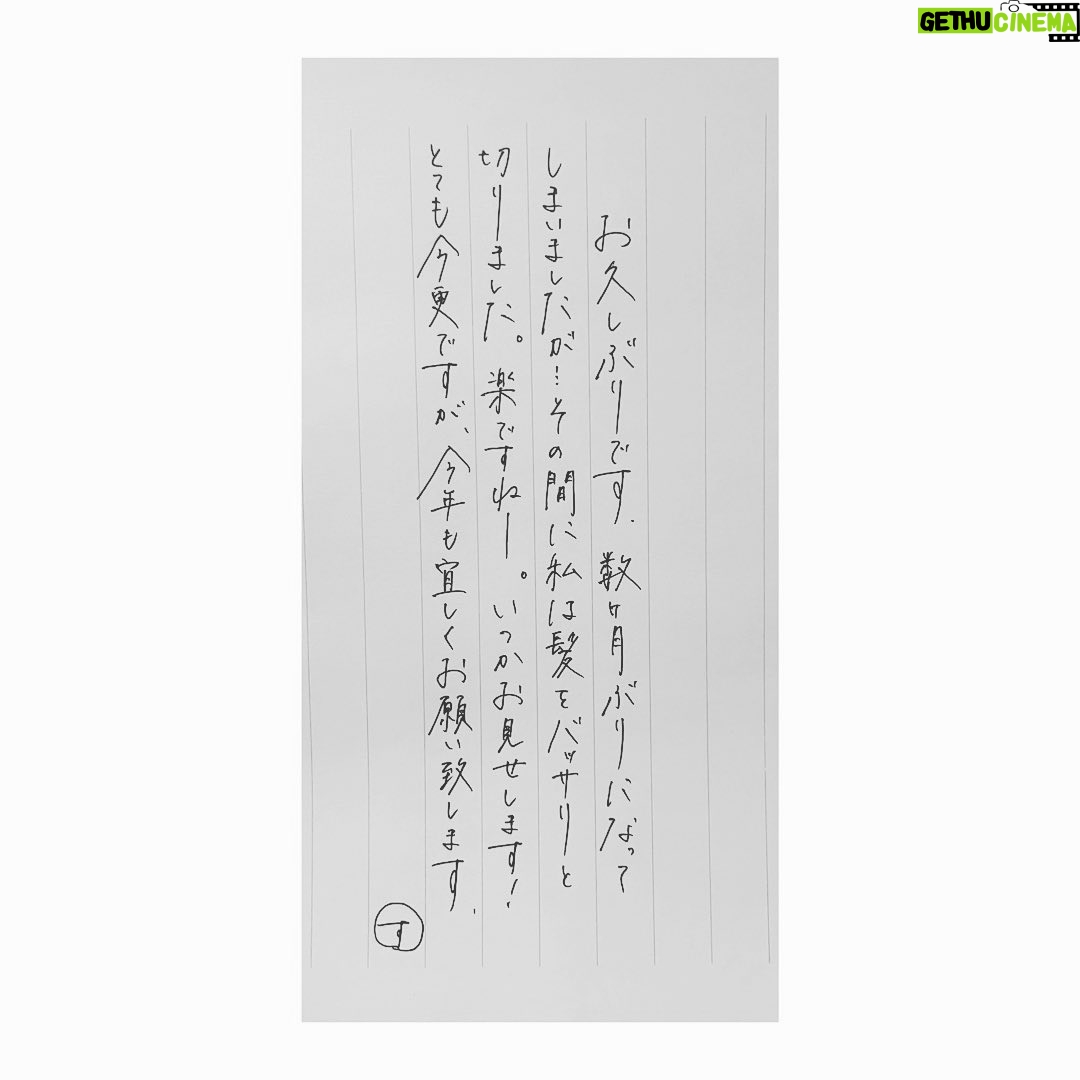 お久しぶりです．数ヶ月ぶりになって
しまいましたが…その間に私は髪をバッサリと
切りました。楽ですねー。いつかお見せします！
とても今更ですが、今年も宜しくお願い致します．
す
GETHUCINEMA